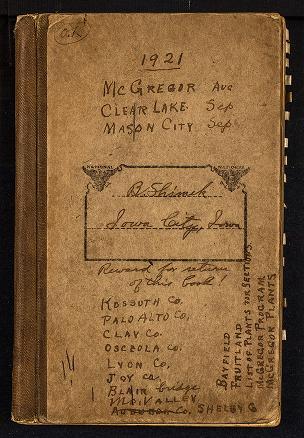 Cat.
1921
McGregor Aug
Clear Lake Sep
Mason City Sep
NATIONAL NATIONAL
B. Shimek
Iowa City, Iowa
Reward for return
of this book!
Kossuth Co.
Palo Alto Co.
Clay Co.
Osceola Co.
Lyon Co.
Joy Co.
Blair bridge
Mo. Valley
Audubon Co. Shelby Co
Bayfield
Fruitland
List of Plants for Sections
McGregor Program
McGregor Plants